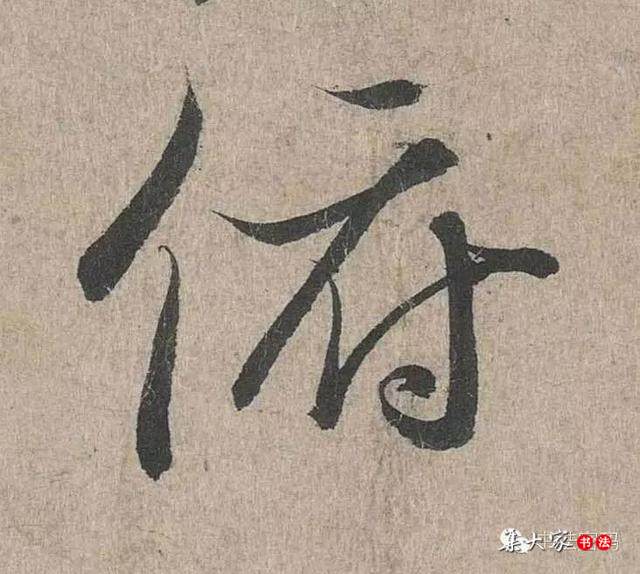 俯
集大家书法